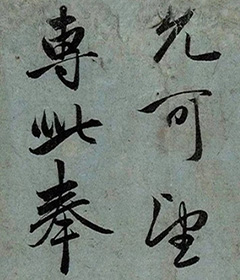 允可望
專此奉